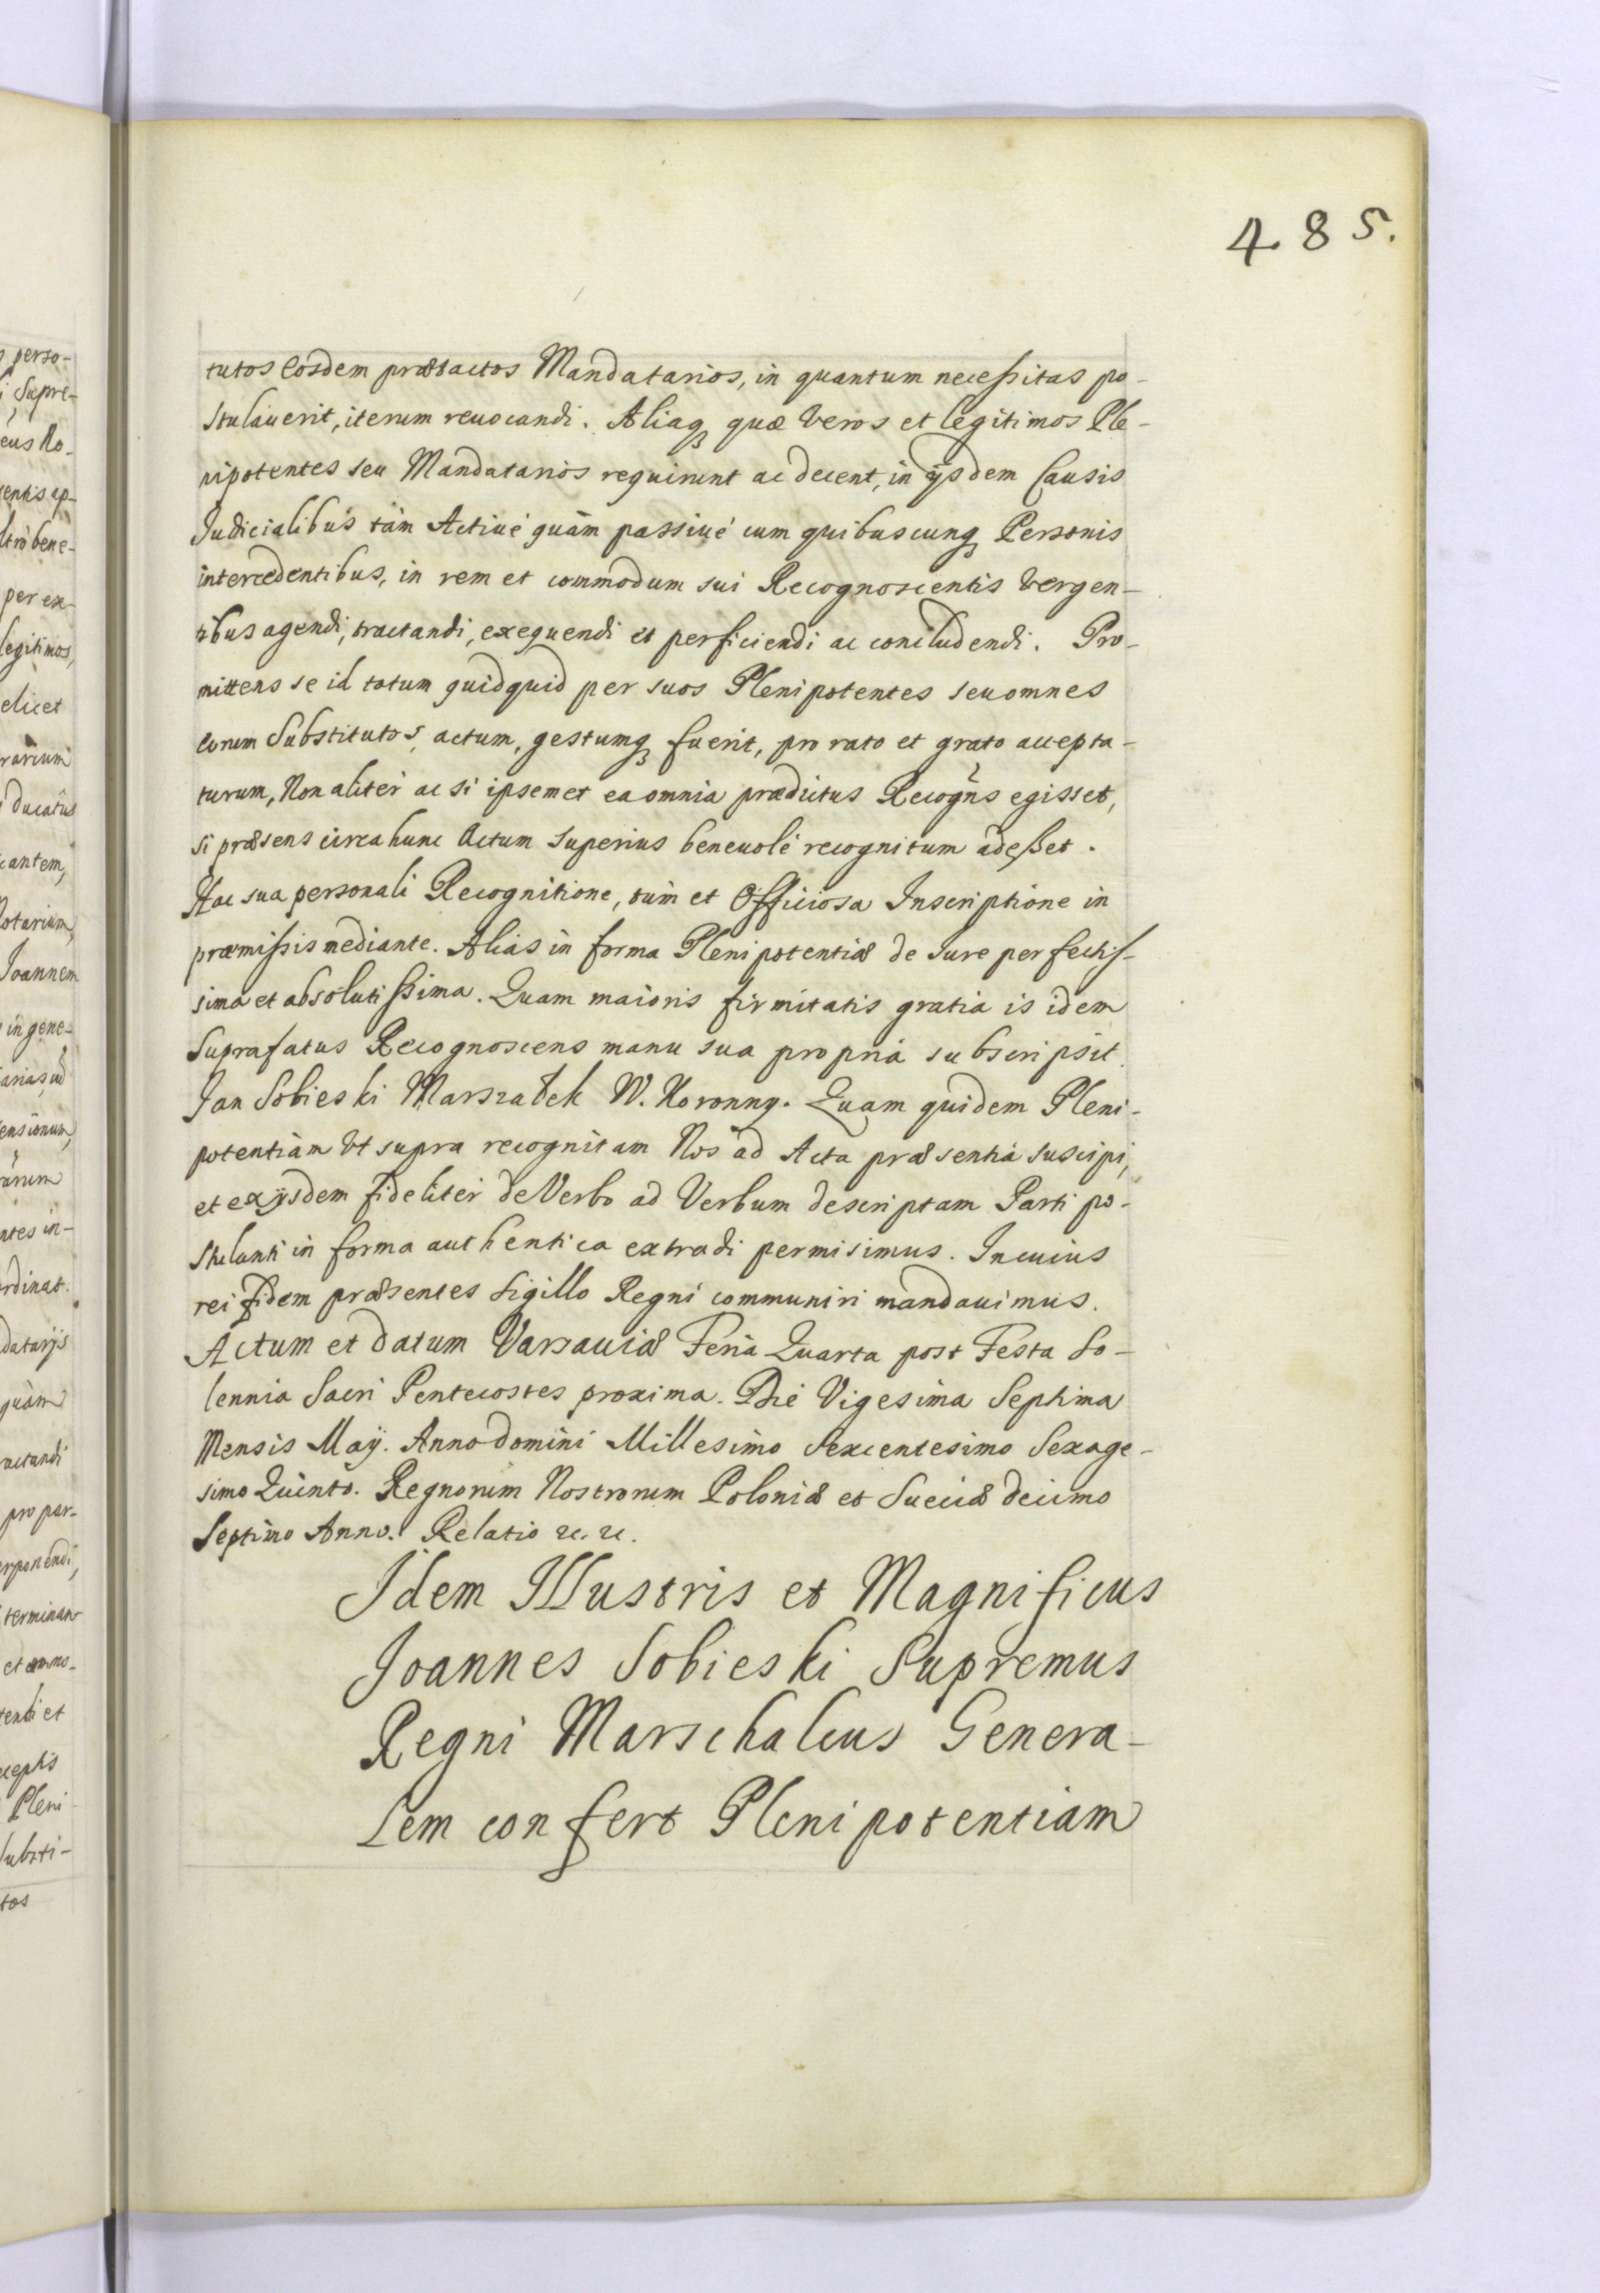 485.
tutos Eosdem prætactos Mandatarios, in quantum neceßitas po-
stulauerit, iterum reuocandi. Aliaq₃ quæ Veros et legitimos Ple-
nipotentes seu Mandatarios requirunt ac decent, in ÿsdem Causis
Judicialibus tàm Actiué quàm passiué cum quibuscunq₃ Personis
intercedentibus, in rem et commodum sui Recognoscentis Vergen-
tibus agendi, tractandi, exequendi et perficiendi ac concludendi. Pro-
mittens se id totum quidquid per suos Plenipotentes seu omnes
eorum Substitutos, actum, gestumq₃ fuerit, pro rato et grato accepta-
turum, Non aliter ac si ipsemet ea omnia prædictus Recogñs egisset,
si præsens circa hunc Actum superius beneuolé recognitum adeßet.
Hac sua personali Recognitione, tùm et Officiosa Inscriptione in
præmißis mediante. Aliàs in forma Plenipotentiæ de Jure perfectis-
sima et absolutißima. Quam maioris firmitatis gratia is idem
Suprafatus Recognoscens manu sua propria subscripsit.
Jan Sobieski Marszałek W. Koronny. Quam quidem Pleni-
potentiam Vt supra recognitam Nos ad Acta præsentia suscipi,
et ex ijsdem fideliter de Verbo ad Verbum descriptam Parti po-
stulanti in forma authentica extradi permisimus. In cuius
rei fidem præsentes Sigillo Regni communiri mandauimus.
Actum et datum Varsauiæ Feria Quarta post Festa So-
lennia Sacri Pentecostes proxima. Die Vigesima Septima
Mensis Maÿ. Anno Domini Millesimo Sexcentesimo Sexage-
simo Quinto. Regnorum Nostrorum Poloniæ et Sueciæ decimo
Septimo Anno. Relatio etc. etc.
Idem Illustris et Magnificus
Joannes Sobieski Supremus
Regni Marschalcus Genera-
lem confert Plenipotentiam